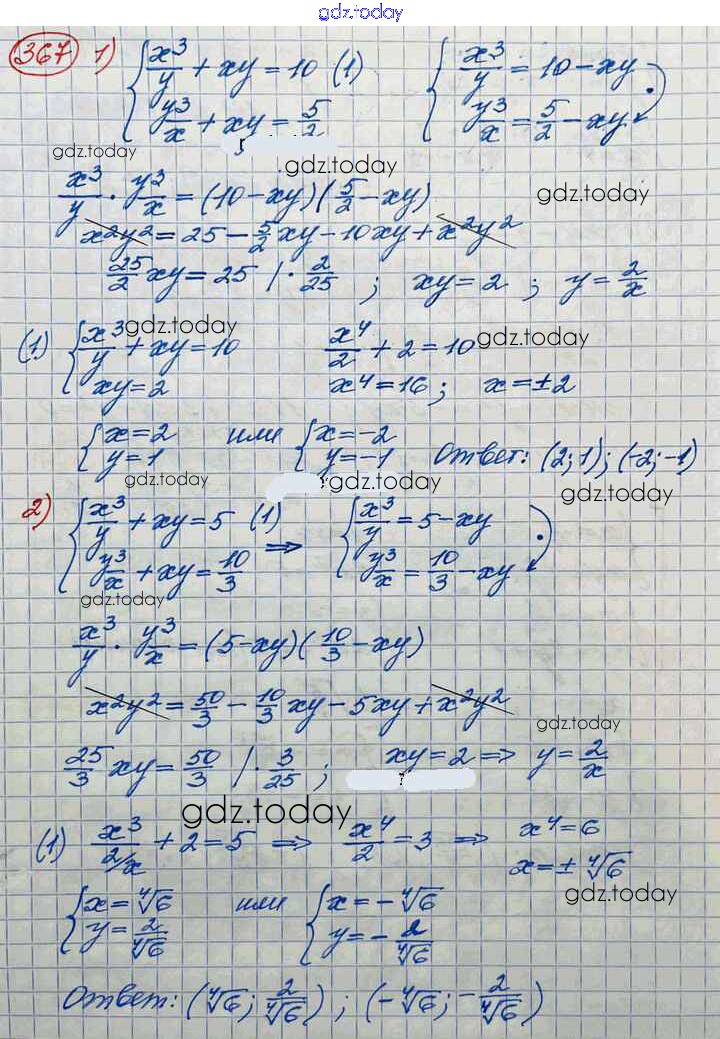 gdz.today
367 1) { x³/y + xy = 10 (1) { x³/y = 10 - xy
y³/x + xy = 5/2 y³/x = 5/2 - xy .
gdz.today
gdz.today
gdz.today
x³/y · y³/x = (10 - xy)(5/2 - xy)
x²y² = 25 - 5/2 xy - 10xy + x²y²
25/2 xy = 25 | · 2/25 ; xy = 2 ; y = 2/x
(1) { x³/y + xy = 10 x⁴/2 + 2 = 10
gdz.today
gdz.today
xy = 2 x⁴ = 16 ; x = ±2
{ x = 2 или { x = -2
y = 1 y = -1 Ответ: (2; 1); (-2; -1)
gdz.today
gdz.today
gdz.today
2) { x³/y + xy = 5 (1) ⇒ { x³/y = 5 - xy
y³/x + xy = 10/3 y³/x = 10/3 - xy .
gdz.today
x³/y · y³/x = (5 - xy)(10/3 - xy)
x²y² = 50/3 - 10/3 xy - 5xy + x²y²
gdz.today
25/3 xy = 50/3 | · 3/25 ; xy = 2 ⇒ y = 2/x
gdz.today
(1) x³/2/x + 2 = 5 ⇒ x⁴/2 = 3 ⇒ x⁴ = 6
x = ± ⁴√6
gdz.today
{ x = ⁴√6 или { x = - ⁴√6
y = 2/⁴√6 y = - 2/⁴√6
Ответ: (⁴√6; 2/⁴√6) ; (-⁴√6; -2/⁴√6)